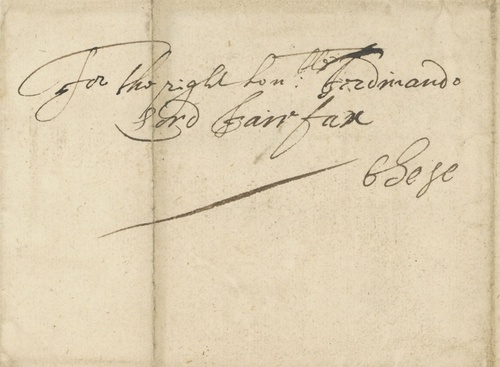 For the right hon:ble Ferdinando
Lord Fairfax
these